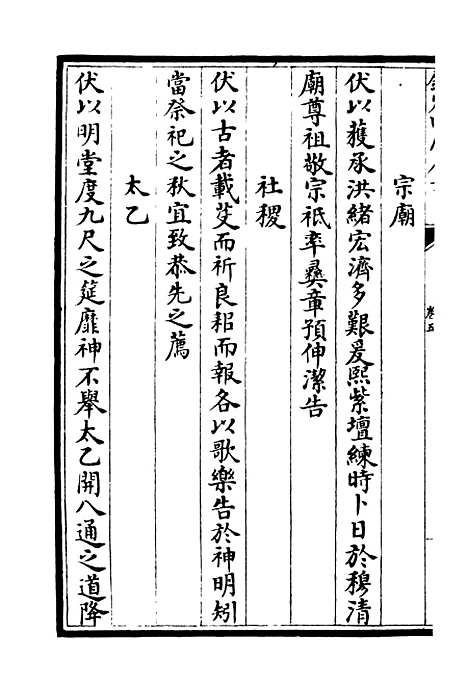 宗廟
伏以獲承洪緒宏濟多艱爰熙紫壇練時卜日於穆清
廟尊祖敬宗祗率彞章預伸潔告
社稷
伏以古者載芟而祈良耜而報各以歌樂告於神明矧
當祭祀之秋宜致恭先之薦
太乙
伏以明堂度九尺之筵靡神不舉太乙開八通之道降
卷五